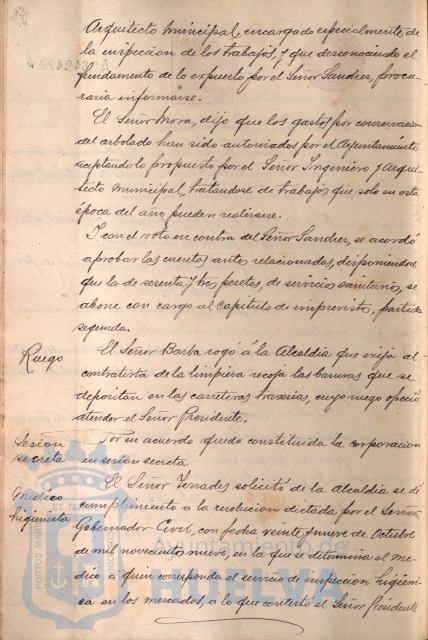 Arquitecto Municipal, encargado especialmente de
la inspeccion de los trabajos, y que desconociendo el
fundamento de lo expuesto por el Señor Sanchez, procu-
raria informarse.
El Señor Mora, dijo que los gastos por conservacion
del arbolado han sido autorizados por el Ayuntamiento
aceptando lo propuesto por el Señor Ingeniero y Arqui-
tecto Municipal, tratandose de trabajos que solo en esta
época del año pueden realizarse.
Y con el voto en contra del Señor Sanchez, se acordó
aprobar las cuentas antes relacionadas, disponiendose
que la de sesenta y tres pesetas, de servicios sanitarios, se
abone con cargo al capitulo de imprevistos, partida
segunda.
Ruego
El Señor Barba rogó á la Alcaldia que exija al
contratista de la limpieza recoja las basuras que se
depositan en las carreteras travesias, cuyo ruego ofreció
atender el Señor Presidente.
Sesion
secreta
Por su acuerdo quedó constituida la corporacion
en sesion secreta
Medico
higienista
El Señor Terrades solicitó de la Alcaldia se dé
cumplimiento a la resolucion dictada por el Señor
Gobernador Civil, con fecha veinte y nueve de Octubre
de mil novecientos nueve, en la que se determina el me-
dico a quien corresponda el servicio de inspeccion higiéni-
ca en los mercados, a lo que contestó el Señor Presidente
Ayuntamiento de
HUELVA